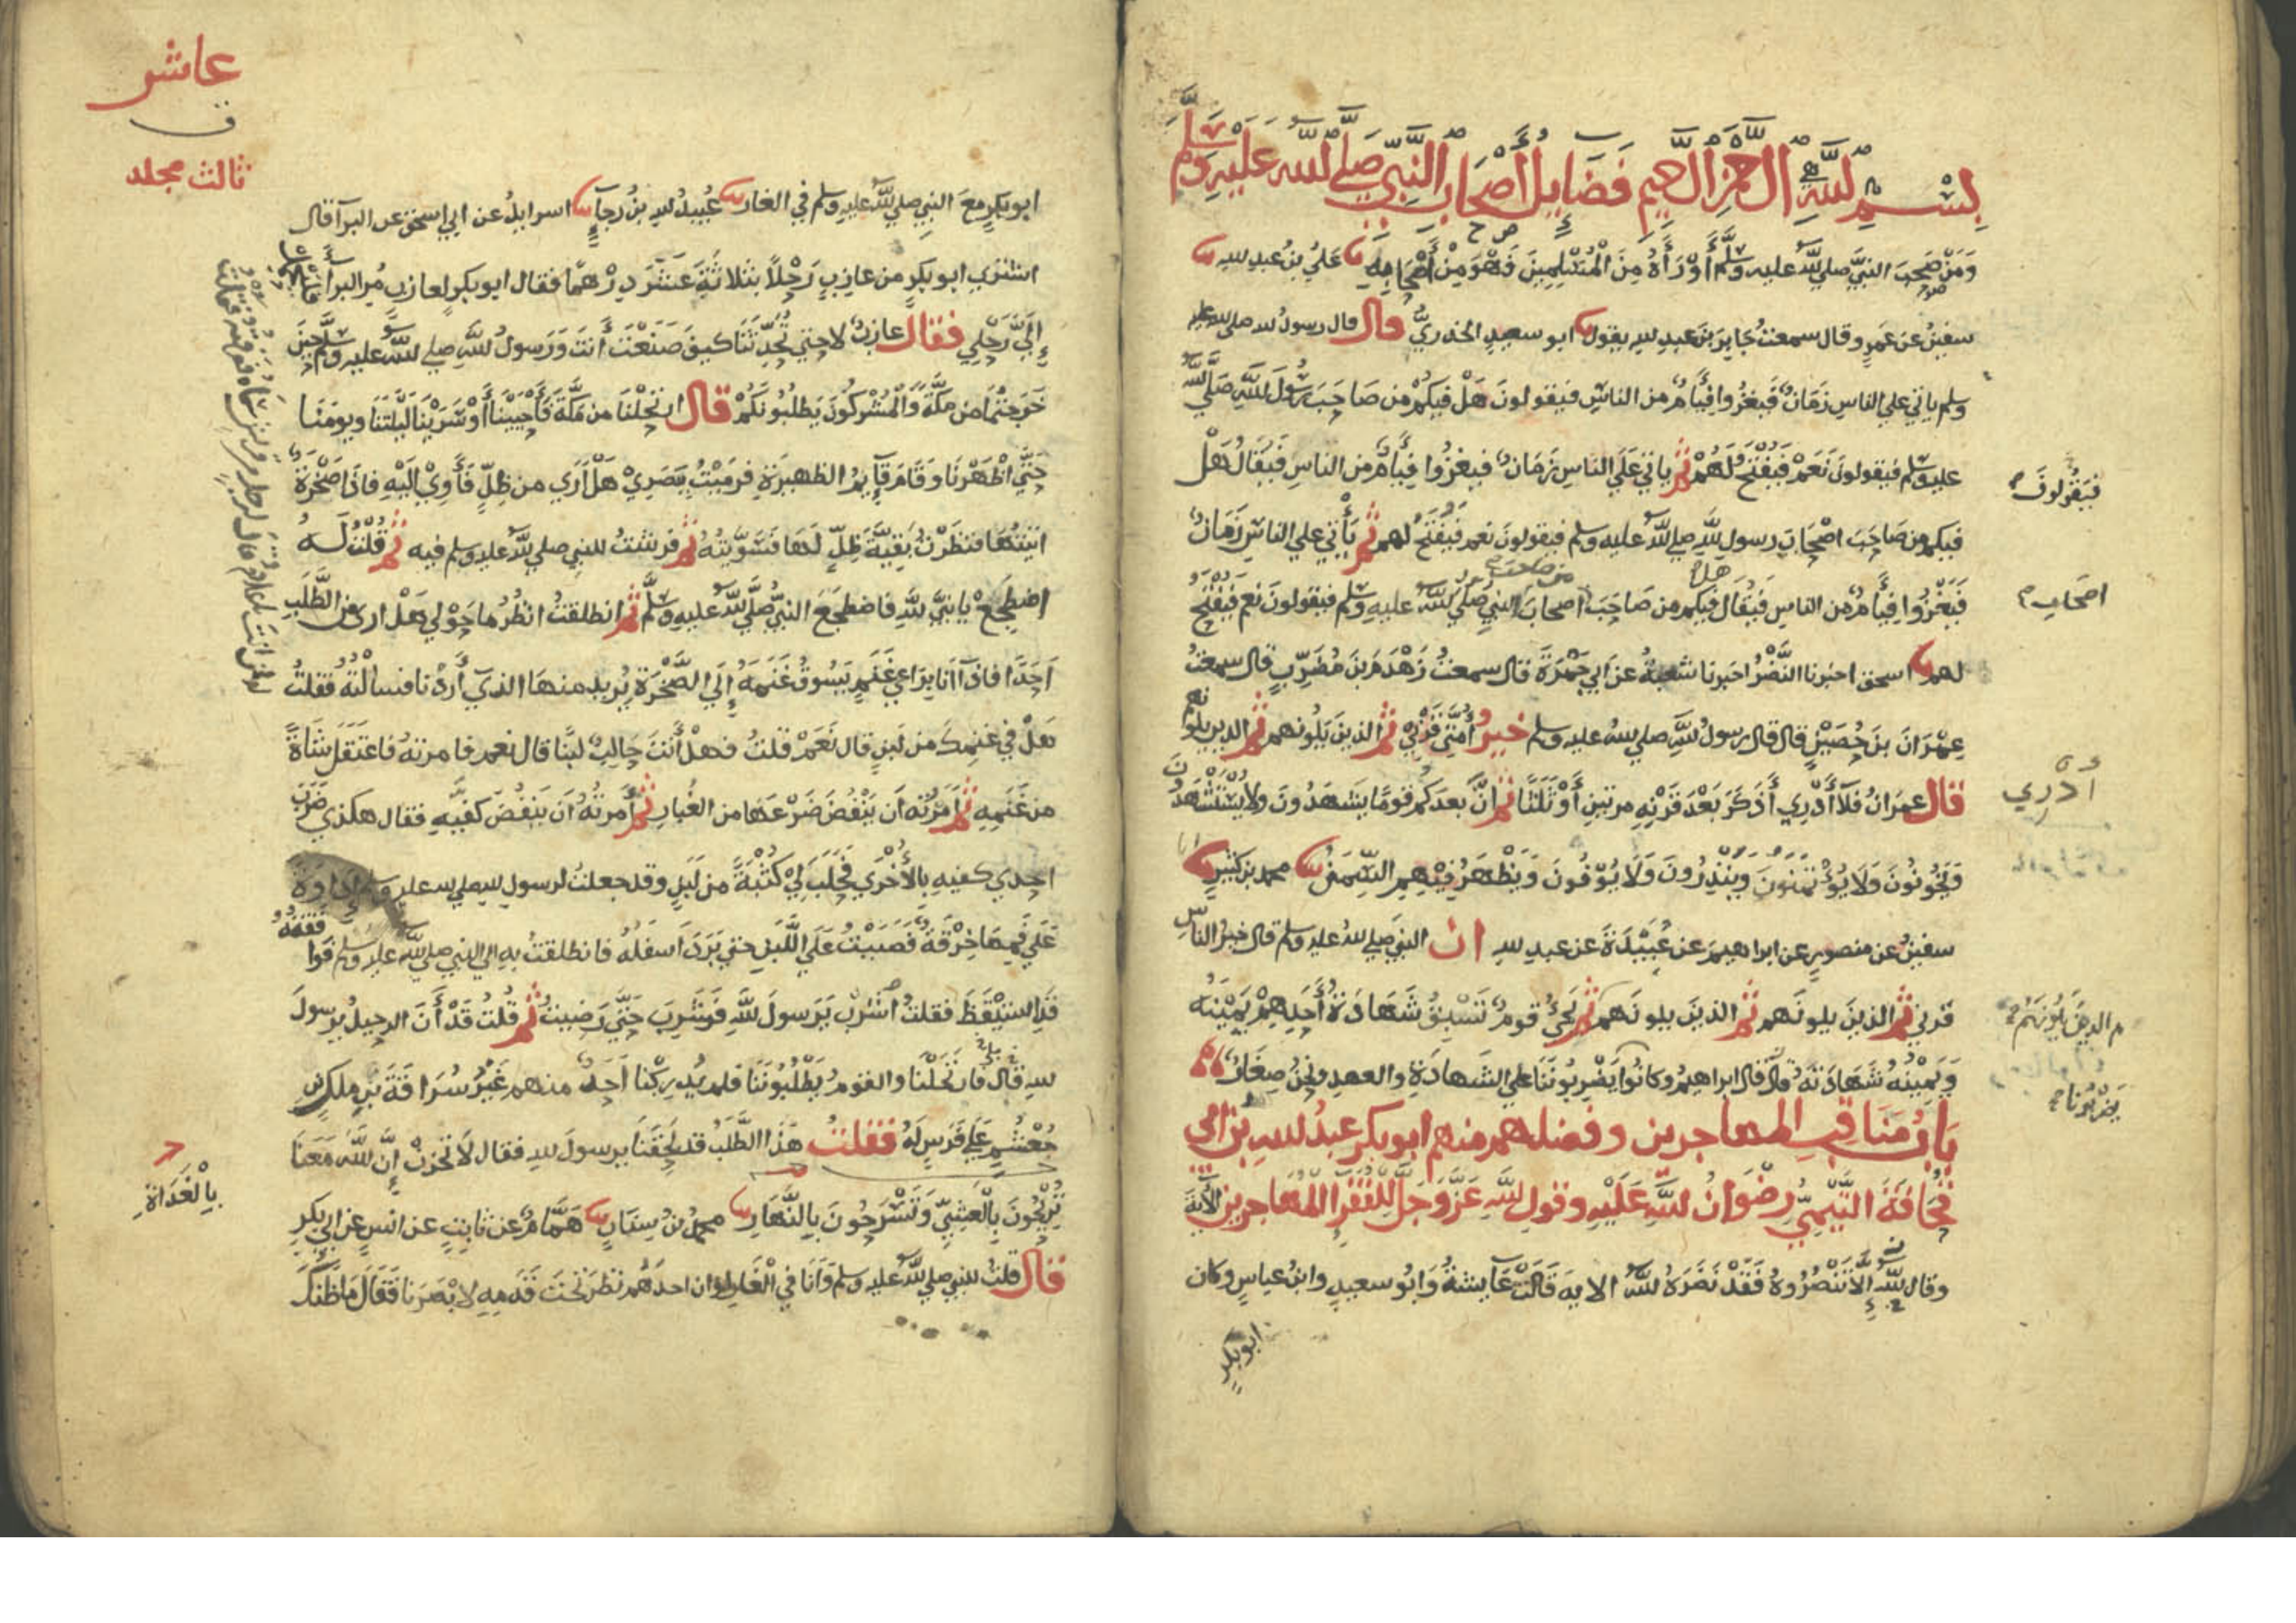 بسم الله الرحمن الرحيم فضايل أصحاب النبي صلى الله عليه وسلم
ومن صحب النبي صلي الله عليه وسلم أو رأه من المسلمين فهو من أصحابه علي بن عبد الله
سفين عن عمرو قال سمعت جابر بن عبد الله يقول ابو سعيد الخدري قال قال رسول الله صلى الله عليه
وسلم ياتي علي الناس زمان فيغزوا فيام من الناس فيقولون هل فيكم من صاحب رسول الله صلى الله
عليه وسلم فيقولون نعم فيفتح لهم ثم ياتي علي الناس زمان فيغزوا فيام من الناس فيقال هل
فيقولون
فيكم من صاحب اصحاب رسول الله صلى الله عليه وسلم فيقولون نعم فيفتح لهم ثم يأتي علي الناس زمان
فيغزوا فيام من الناس فيقال هل فيكم من صاحب من صاحب اصحاب النبي صلى الله عليه وسلم فيقولون نعم فيفتح
اصحاب
لهم اسحق اخبرنا النضر اخبرنا شعبة عن ابي جمرة قال سمعت زهدم بن مضرب قال سمعت
عمران بن حصين قال قال رسول الله صلي الله عليه وسلم خير أمتي قرني ثم الذين يلونهم ثم الذين يلونهم
قال عمران فلا أدري أذكر بعد قرنه مرتين أو ثلثا ثم ان بعدكم قوما يشهدون ولا يستشهدون
أدري
ويخونون ولا يؤتمنون وينذرون ولا يوفون ويظهر فيهم السمن محمد بن كثير
سفين عن منصور عن ابراهيم عن عبيدة عن عبد الله ان النبي صلي الله عليه وسلم قال خير الناس
قرني ثم الذين يلونهم ثم الذين يلونهم ثم يجئ قوم تسبق شهادة أحدهم يمينه
الذين يلونهم
ويمينه شهادته قال قال ابراهيم وكانوا يضربوننا علي الشهادة والعهد ونحن صغار
يضربونا
باب مناقب المهاجرين وفضلهم منهم ابو بكر عبد الله بن ابي
قحافة التيمي رضوان الله عليه وقول الله عز وجل للفقرا المهاجرين الآية
وقال الله إلا تنصروه فقد نصره الله الايه قالت عايشة وابو سعيد وابن عباس وكان
ابو بكر
عاشر
ثالث مجلد
ابو بكر مع النبي صلي الله عليه وسلم في الغار عبيد الله بن رجآ اسرايل عن ابي اسحق عن البرآ قال
اشتري ابو بكر من عازب رحلا بثلاثة عشر درهما فقال ابو بكر لعازب مر البرآ
إلي رحلي فقال عازب لا حتي تحدثنا كيف صنعت أنت ورسول الله صلى الله عليه وسلم حين
خرجتما من مكة والمشركون يطلبونكم قال ارتحلنا من مكة فأحيينا أو سرينا ليلتنا ويومنا
حتي اظهرنا وقام قآيم الظهيرة فرميت ببصري هل أري من ظل فأوي اليه فاذا صخرة
اتيتها فنظرت بقية ظل لها فسويته ثم فرشت للنبي صلي الله عليه وسلم فيه ثم قلت له
اضطجع يا نبي الله فاضطجع النبي صلى الله عليه وسلم ثم انطلقت انظر ما حولي هل اري من الطلب
احدا فاذا انا براعي غنم يسوق غنمه إلي الصخرة يريد منها الذي أردنا فسالته فقلت
هل في غنمك من لبن قال نعم قلت فهل أنت حالب لبنا قال نعم فامرته فاعتقل شاة
من غنمه ثم أمرته أن ينفض ضرعها من الغبار ثم أمرته أن ينفض كفيه فقال هكذي ضرب
احدي كفيه بالأخري فحلب لي كثبة من لبن وقد جعلت لرسول الله صلي الله عليه وسلم إداوة
علي فمها خرقة فصببت علي اللبن حتي برد اسفله فانطلقت به الي النبي صلى الله عليه وسلم فوافقته
قد استيقظ فقلت اشرب يرسول الله فشرب حتي رضيت ثم قلت قد أن الرحيل يرسول
الله قال بلي فارتحلنا والقوم يطلبوننا فلم يدركنا أحد منهم غير سراقة بن ملك بن
جعشم علي فرس له فقلت هذا الطلب قد لحقنا يرسول الله فقال لا تحزن إن الله معنا
تريحون بالعشي وتسرحون بالنهار محمد بن سنان همام عن ثابت عن انس عن ابي بكر
بالغداة
قال قلت للنبي صلي الله عليه وسلم وانا في الغار لو ان احدهم نظر تحت قدميه لابصرنا فقال ما ظنك